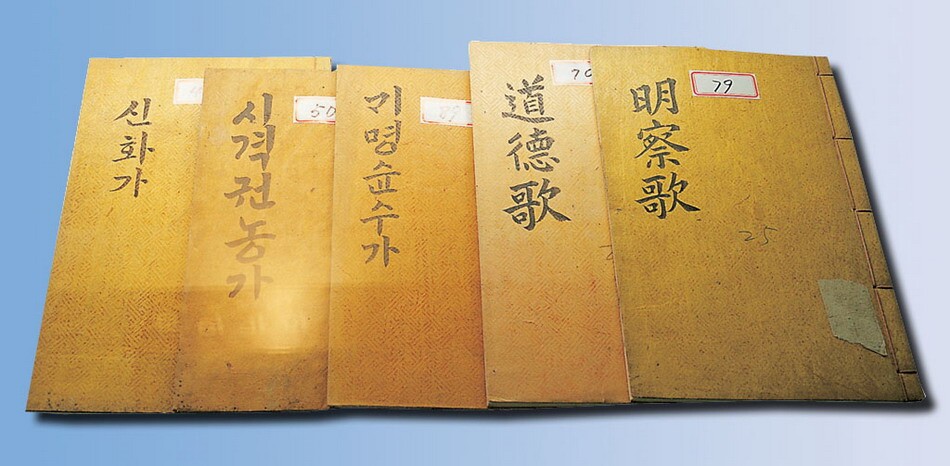 신화가
시격권농가
50
기명슌수가
道德歌
70
明察歌
79
25